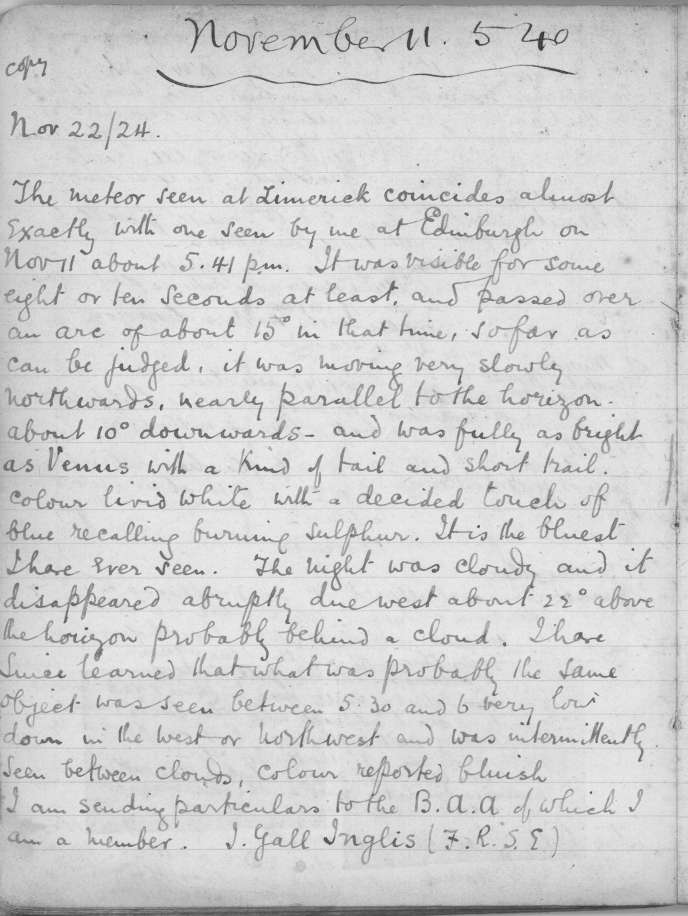 November 11. 5 40
copy
Nov 22/24.
The meteor seen at Limerick coincides almost
Exactly with one seen by me at Edinburgh on
Nov 11 about 5.41 p.m. It was visible for some
eight or ten seconds at least, and passed over
an arc of about 15° in that time, so far as
can be judged, it was moving very slowly
northwards, nearly parallel to the horizon.
about 10° downwards - and was fully as bright
as Venus with a kind of tail and short trail.
colour livid white with a decided touch of
blue recalling burning sulphur. It is the bluest
I have Ever seen. The night was cloudy and it
disappeared abruptly due west about 22° above
the horizon probably behind a cloud. I have
since learned that what was probably the same
object was seen between 5.30 and 6 very low
down in the west or northwest and was intermittently
seen between clouds, colour reported bluish
I am sending particulars to the B.A.A of which I
am a member. J. Gall Inglis (F.R.S.E)